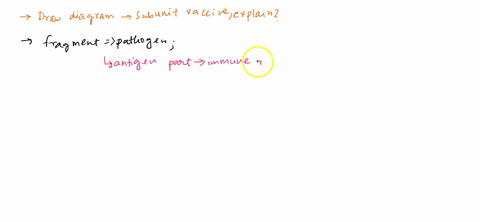 → Draw diagram → Subunit vaccive, explain?
→ fragment => pathogen;
↳ antigen part → immune